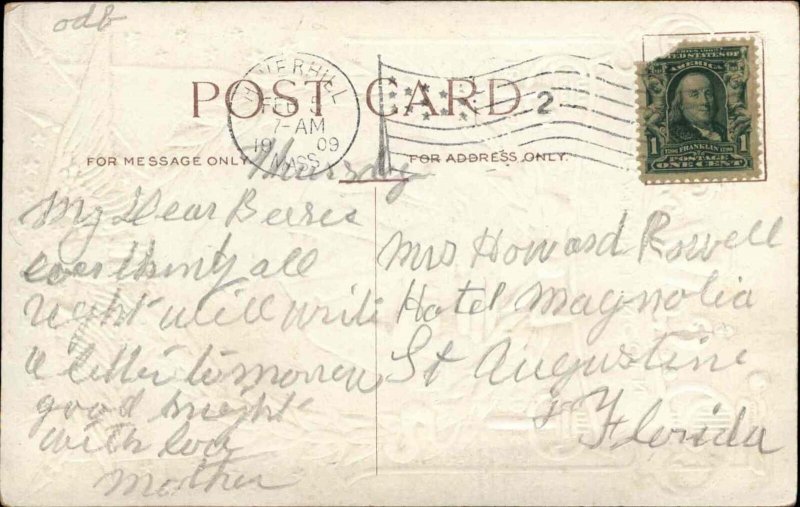 odb
POST CARD
HAVERHILL
FEB 5
7-AM
19 09
MASS.
2
UNITED STATES OF AMERICA
1 1
1706 FRANKLIN 1790
POSTAGE
ONE CENT
FOR MESSAGE ONLY.
FOR ADDRESS ONLY.
Thursday
My Dear
every thing all
right will write
a letter tomorrow
good night
with love
Mother
Mrs Howard Rowell
Hotel Magnolia
St Augustine
Florida